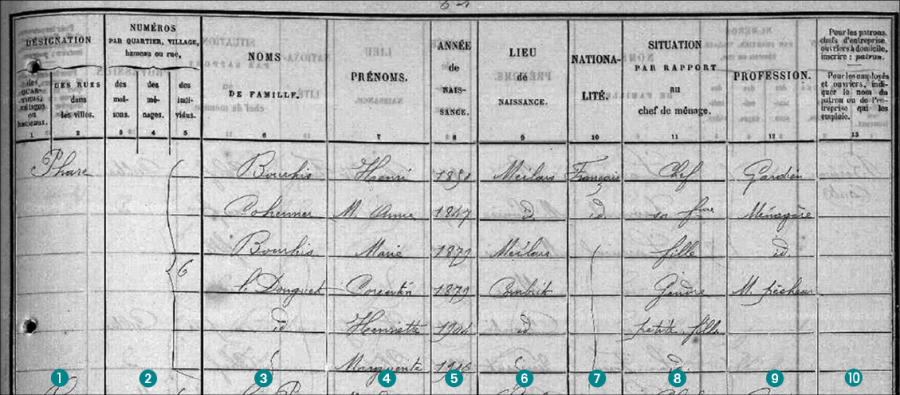 DÉSIGNATION
des QUAR-TIERS, villages ou hameaux.
DES RUES dans les villes.
NUMÉROS
PAR QUARTIER, VILLAGE, hameau ou rue,
des mai-sons.
des mé-nages.
des indi-vidus.
NOMS
DE FAMILLE.
PRÉNOMS.
ANNÉE de NAIS-SANCE.
LIEU de NAISSANCE.
NATIONA-LITÉ.
SITUATION
PAR RAPPORT
au
chef de ménage.
PROFESSION.
Pour les patrons, chefs d'entreprise, ouvriers à domicile, inscrire : patron.
Pour les employés et ouvriers, indiquer le nom du patron ou de l'entreprise qui les emploie.
1 2 3 4 5 6 7 8 9 10 11 12 13
Phare Bourhis Henri Meilars Français Chef Gardien
M. Anne 1847 id id sa fme Ménagère
Bourhis Marie 1879 Meilars fille id
6
le Donguet Corentin 1879 Combrit Gendre M. pêcheur
id Henriette id petite fille
Marguerite
1 2 3 4 5 6 7 8 9 10